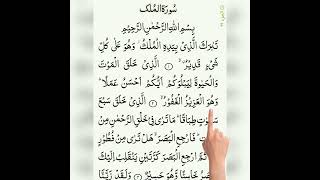 سُورَةُ الْمُلْك
بِسْمِ اللهِ الرَّحْمٰنِ الرَّحِيْمِ
تَبٰرَكَ الَّذِىْ بِيَدِهِ الْمُلْكُ وَهُوَ عَلٰى كُلِّ
شَىْءٍ قَدِيْرُ ۙ ۱ الَّذِىْ خَلَقَ الْمَوْتَ
وَالْحَيٰوةَ لِيَبْلُوَكُمْ اَيُّكُمْ اَحْسَنُ عَمَلًا ؕ
وَهُوَ الْعَزِيْزُ الْغَفُوْرُ ۙ ۲ الَّذِىْ خَلَقَ سَبْعَ
سَمٰوٰتٍ طِبَاقًا ؕ مَا تَرٰى فِىْ خَلْقِ الرَّحْمٰنِ مِنْ
فَارْجِعِ الْبَصَرَ ۙ هَلْ تَرٰى مِنْ فُطُوْرٍ
ارْجِعِ الْبَصَرَ كَرَّتَيْنِ يَنْقَلِبْ اِلَيْكَ
الْبَصَرُ خَاسِئًا وَّهُوَ حَسِيْرٌ ۴ وَلَقَدْ زَيَّنَّا